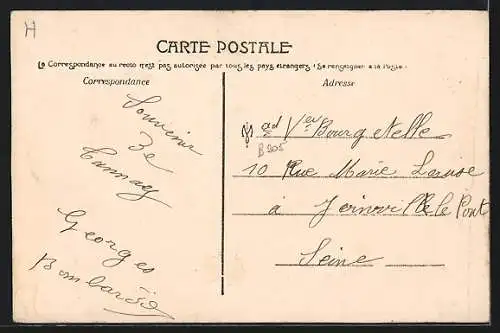 H
CARTE POSTALE
La Correspondance au recto n'est pas autorisée par tous les pays étrangers (Se renseigner à la Poste)
Correspondance
Adresse
Souvenir
De
Tannay
Georges
M ad Vve Bourg
B205
10 Rue Marie
à Joinville le Pont
Seine